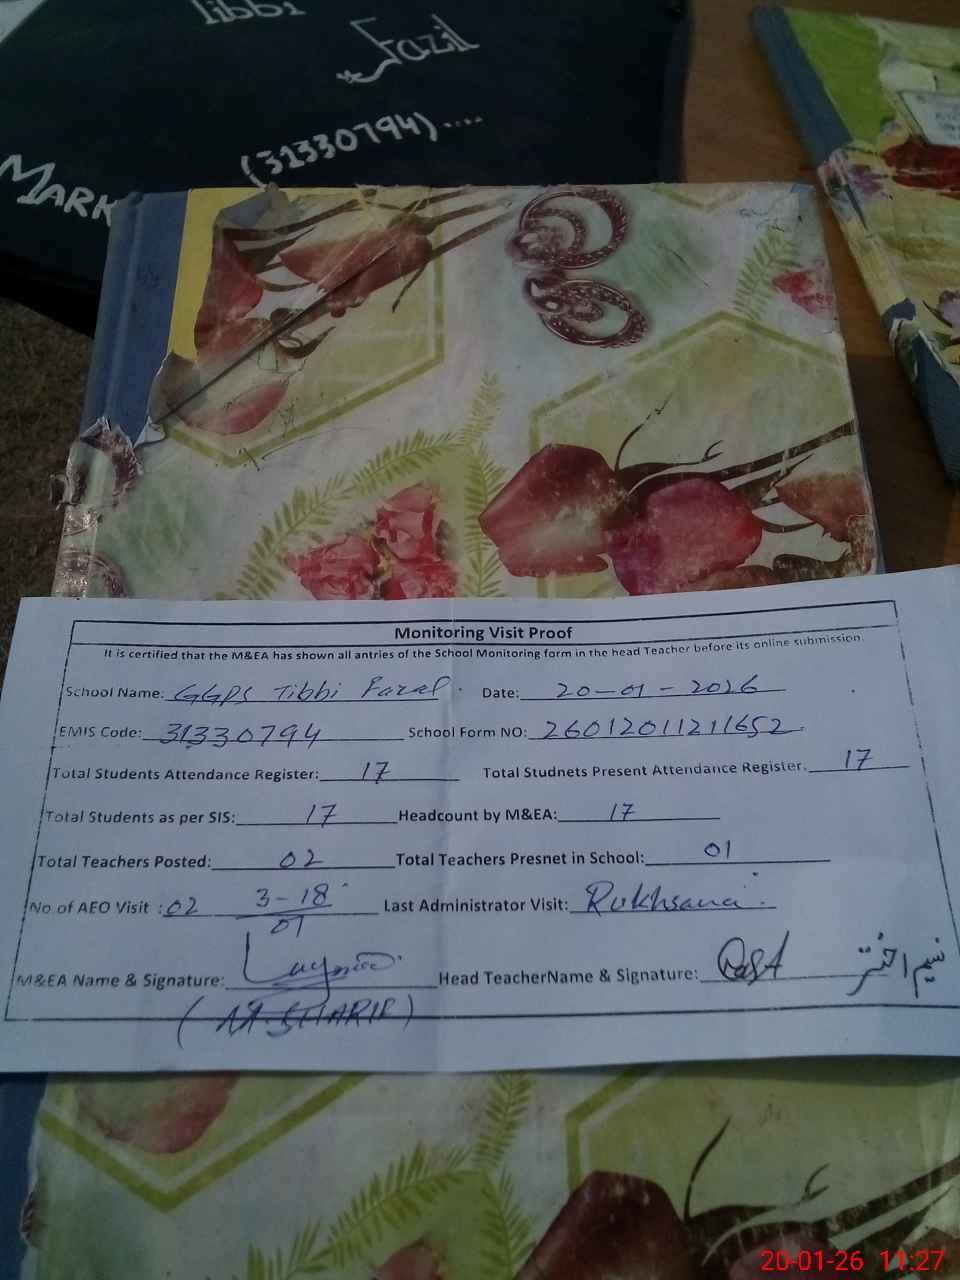 Tibbi
Fazil
(31330794)....
MARK
Monitoring Visit Proof
It is certified that the M&EA has shown all antries of the School Monitoring form in the head Teacher before its online submission.
School Name: GGPS Tibbi Fazal. Date: 20-01-2026
EMIS Code: 31330794 School Form NO: 26012011211652
Total Students Attendance Register: 17 Total Studnets Present Attendance Register. 17
Total Students as per SIS: 17 Headcount by M&EA: 17
Total Teachers Posted: 02 Total Teachers Presnet in School: 01
No of AEO Visit : 02 3-18 Last Administrator Visit: Rukhsana
01
M&EA Name & Signature: Head TeacherName & Signature: نسیم اختر
(M. SHARIF)
20-01-26 11:27